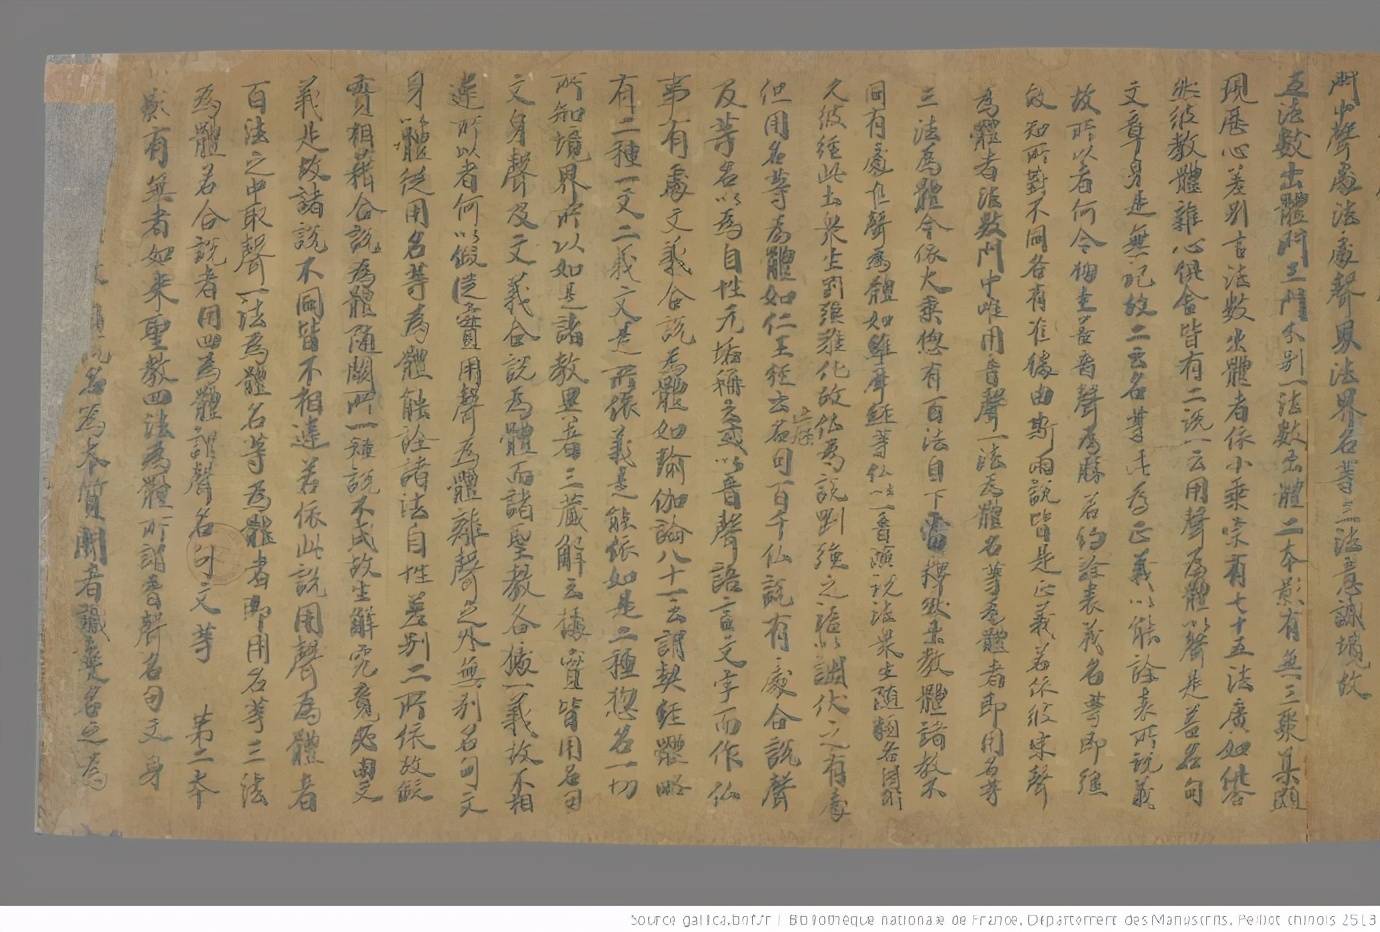 門中聲處法處聲界法界名等三法意識境故
五法數出體門三門分别一法數出體二本影有無三聚集顯
現歷心差別言法數出體者依小乘宗有七十五法廣如俱舍
然彼教體雜心俱舍皆有二説一云用聲為體以聲是善名句
文章身是無記故二云名等為正義以能詮表所説義
故所以者何令細其善音聲為勝若約詮表義名等即強
故知所對不同各有准據由斯兩説皆是正義若依彼宗聲
為體者法數門中唯用音聲一法為體名等為體者即用名等
三法為體今依大乘惣有百法自下當釋然来教體諸教不
同有處唯聲為體如維摩経等仏以一音演説法衆生随類各得解
又彼経此土衆生剛強難化故仏為説剛強之語以調伏之有處
但用名等為體如仁王経云名句百千仏説有處合説聲
及等名以為自性无垢稱云或以音聲語言文字而作仏
事有處文義合説為體如瑜伽論八十一云謂契経體略
有二種一文二義文是所依義是能依如是二種惣名一切
所知境界所以如是諸教異者三藏解云據實皆用名句
文身聲及文義合説為體而諸聖教各據一義故不相
違所以者何以假従實用聲為體離聲之外無別名句文
身以體従用名等為體能詮諸法自性差別二所依故假
實相藉合説為體随闕所一種説不成故生解究竟必由文
義是故諸説不同皆不相違若依此説用聲為體者
百法之中取聲一法為體名等為體者即用名等三法
為體若合説者用四為體謂聲名句文等 第二本
影有無者如来聖教四法為體所謂音聲名句文身
名為本質聞者識變名之為
Source gallica.bnf.fr / Bibliothèque nationale de France. Département des Manuscrits. Pelliot chinois 2513